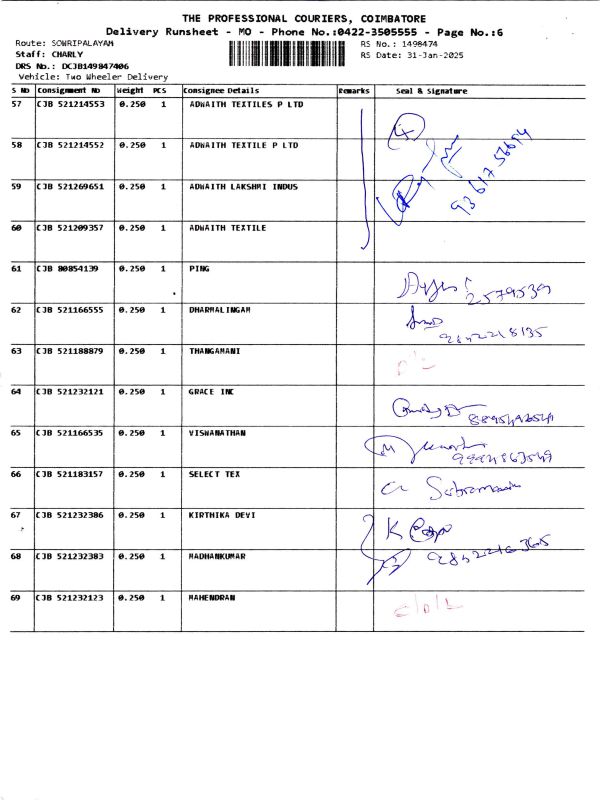 THE PROFESSIONAL COURIERS, COIMBATORE
Delivery Runsheet - MO - Phone No.:0422-3505555 - Page No.:6
Route: SOWRIPALAYAM RS No.: 1498474
Staff: CHARLY RS Date: 31-Jan-2025
DRS No.: DCJB149847406
Vehicle: Two Wheeler Delivery
S No Consignment No Weight PCS Consignee Details Remarks Seal & Signature
57 CJB 521214553 0.250 1 ADWAITH TEXTILES P LTD
4
58 CJB 521214552 0.250 1 ADWAITH TEXTILE P LTD
59 CJB 521269651 0.250 1 ADWAITH LAKSHMI INDUS
60 CJB 521209357 0.250 1 ADWAITH TEXTILE
61 CJB 80854139 0.250 1 PING
2579539
62 CJB 521166555 0.250 1 DHARMALINGAM
9842218135
63 CJB 521188879 0.250 1 THANGAMANI
64 CJB 521232121 0.250 1 GRACE INC
65 CJB 521166535 0.250 1 VISWANATHAN
66 CJB 521183157 0.250 1 SELECT TEX
67 CJB 521232386 0.250 1 KIRTHIKA DEVI
K
68 CJB 521232383 0.250 1 MADHANKUMAR
69 CJB 521232123 0.250 1 MAHENDRAN